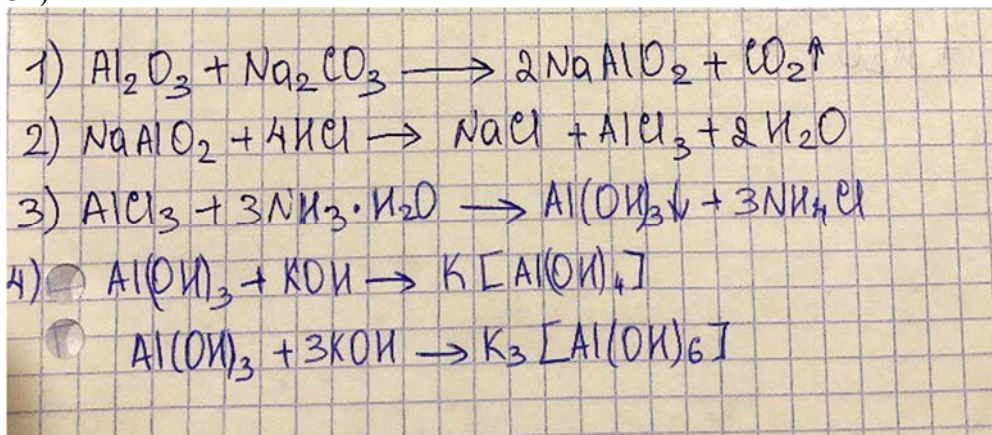 1) Al₂O₃ + Na₂CO₃ ⟶ 2NaAlO₂ + CO₂↑
2) NaAlO₂ + 4HCl → NaCl + AlCl₃ + 2H₂O
3) AlCl₃ + 3NH₃·H₂O ⟶ Al(OH)₃↓ + 3NH₄Cl
4) Al(OH)₃ + KOH → K[Al(OH)₄]
Al(OH)₃ + 3KOH → K₃[Al(OH)₆]